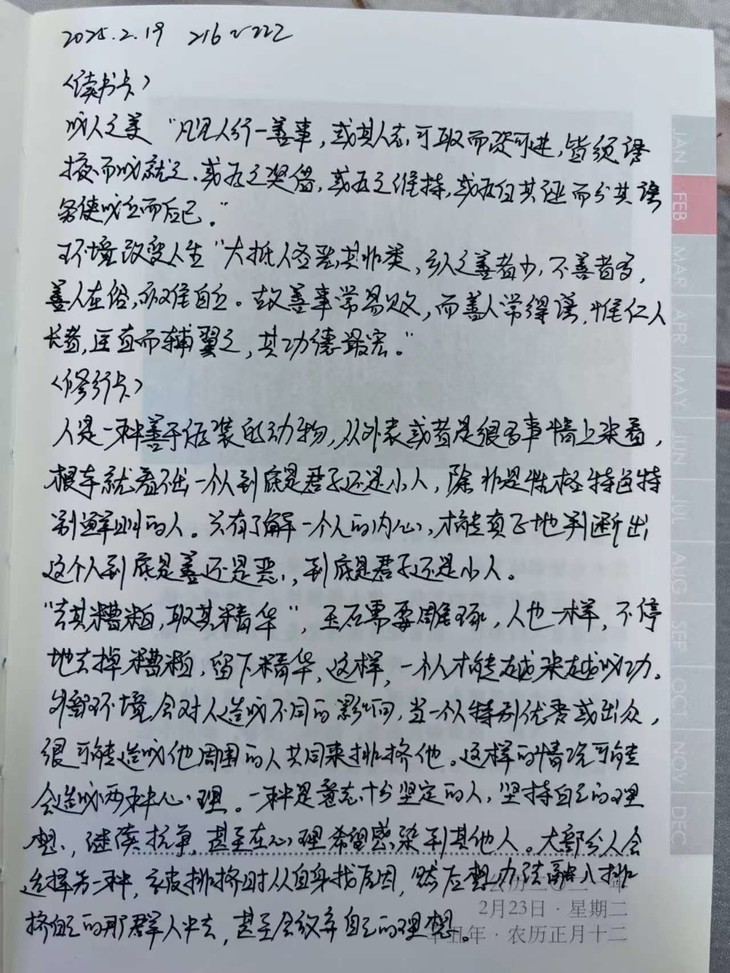 2025.2.19 216~222
<读书卡>
成人之美 "凡见人行一善事,或其人志可取而资可进,皆须诱
掖而成就之。或为之奖借,或为之维持,或为白其诬而分其谤
务使成立而后已。"
环境改变人生 "大抵人各恶其非类,乡人之善者少,不善者多,
善人在俗,亦难自立。故善事常易败,而善人常得谤,惟仁人
长者,匡直而辅翼之,其功德最宏。"
<修行卡>
人是一种善于伪装的动物,从外表或者是很多事情上来看,
根本就看不出一个人到底是君子还是小人,除非是性格特色特
别鲜明的人。只有了解一个人的内心,才能真正地判断出
这个人到底是善还是恶,到底是君子还是小人。
"去其糟粕,取其精华",玉石需要雕琢,人也一样,不停
地去掉糟粕,留下精华,这样,一个人才能越来越成功。
外部环境会对人造成不同的影响,当一个人特别优秀或出众,
很可能造成他周围的人共同来排挤他。这样的情况可能
会造成两种心理。一种是意志十分坚定的人,坚持自己的理
想,继续抗争,甚至在心理希望感染到其他人。大部分人会
选择另一种,被排挤时从自身找原因,然后想办法融入排
挤自己的那群人中去,甚至会放弃自己的理想。
JAN
FEB
MAR
APR
MAY
JUN
JUL
AUG
SEP
OCT
NOV
DEC
2月23日·星期二
丑年·农历正月十二